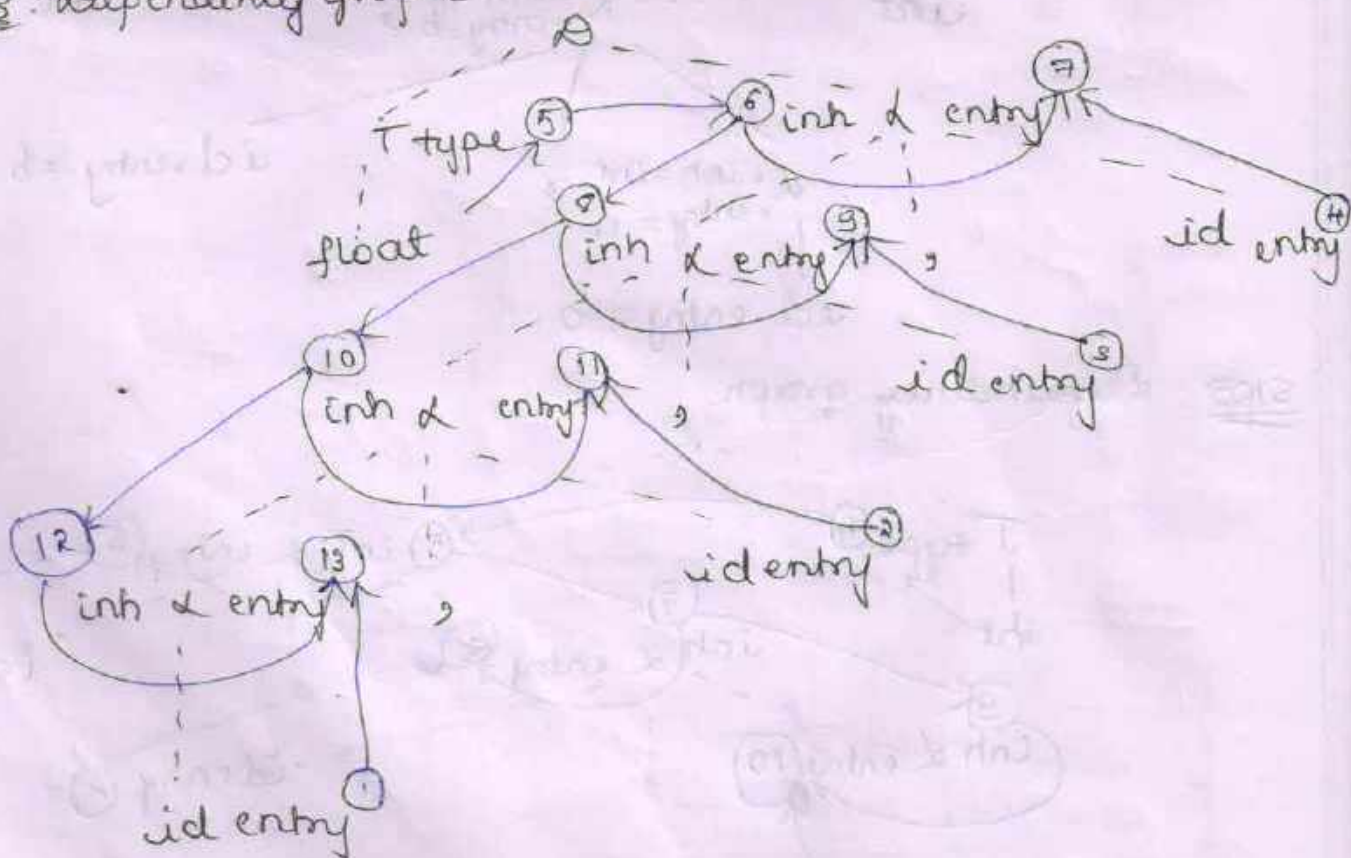 Dependency graph
D
T type 5 6 inh L entry 7
float 8 inh L entry 9 , id entry 4
10 inh L entry 11 , id entry 3
12 inh L entry 13 , id entry 2
id entry 1